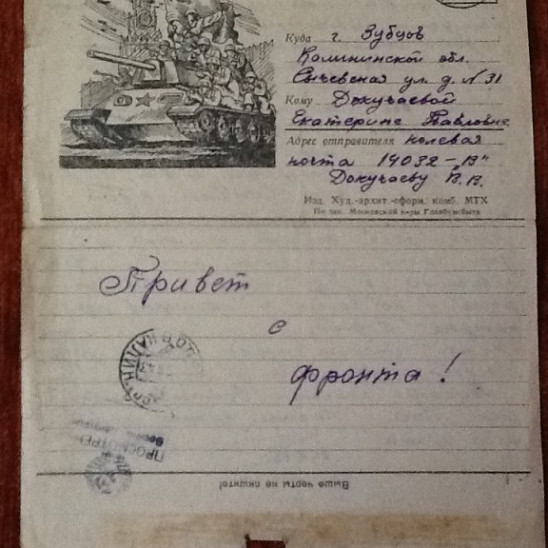 Куда г. Зубцов
Калининской обл.
Сычевская ул. д. № 31
Кому Докучаевой
Екатерине Павловне
Адрес отправителя полевая
почта 14032-"В"
Докучаеву В.В.
Изд. Худ.-архит.-оформ. комб. МТХ
Привет
с
фронта!
ПРОСМОТРЕНО
Выше черты не писать!